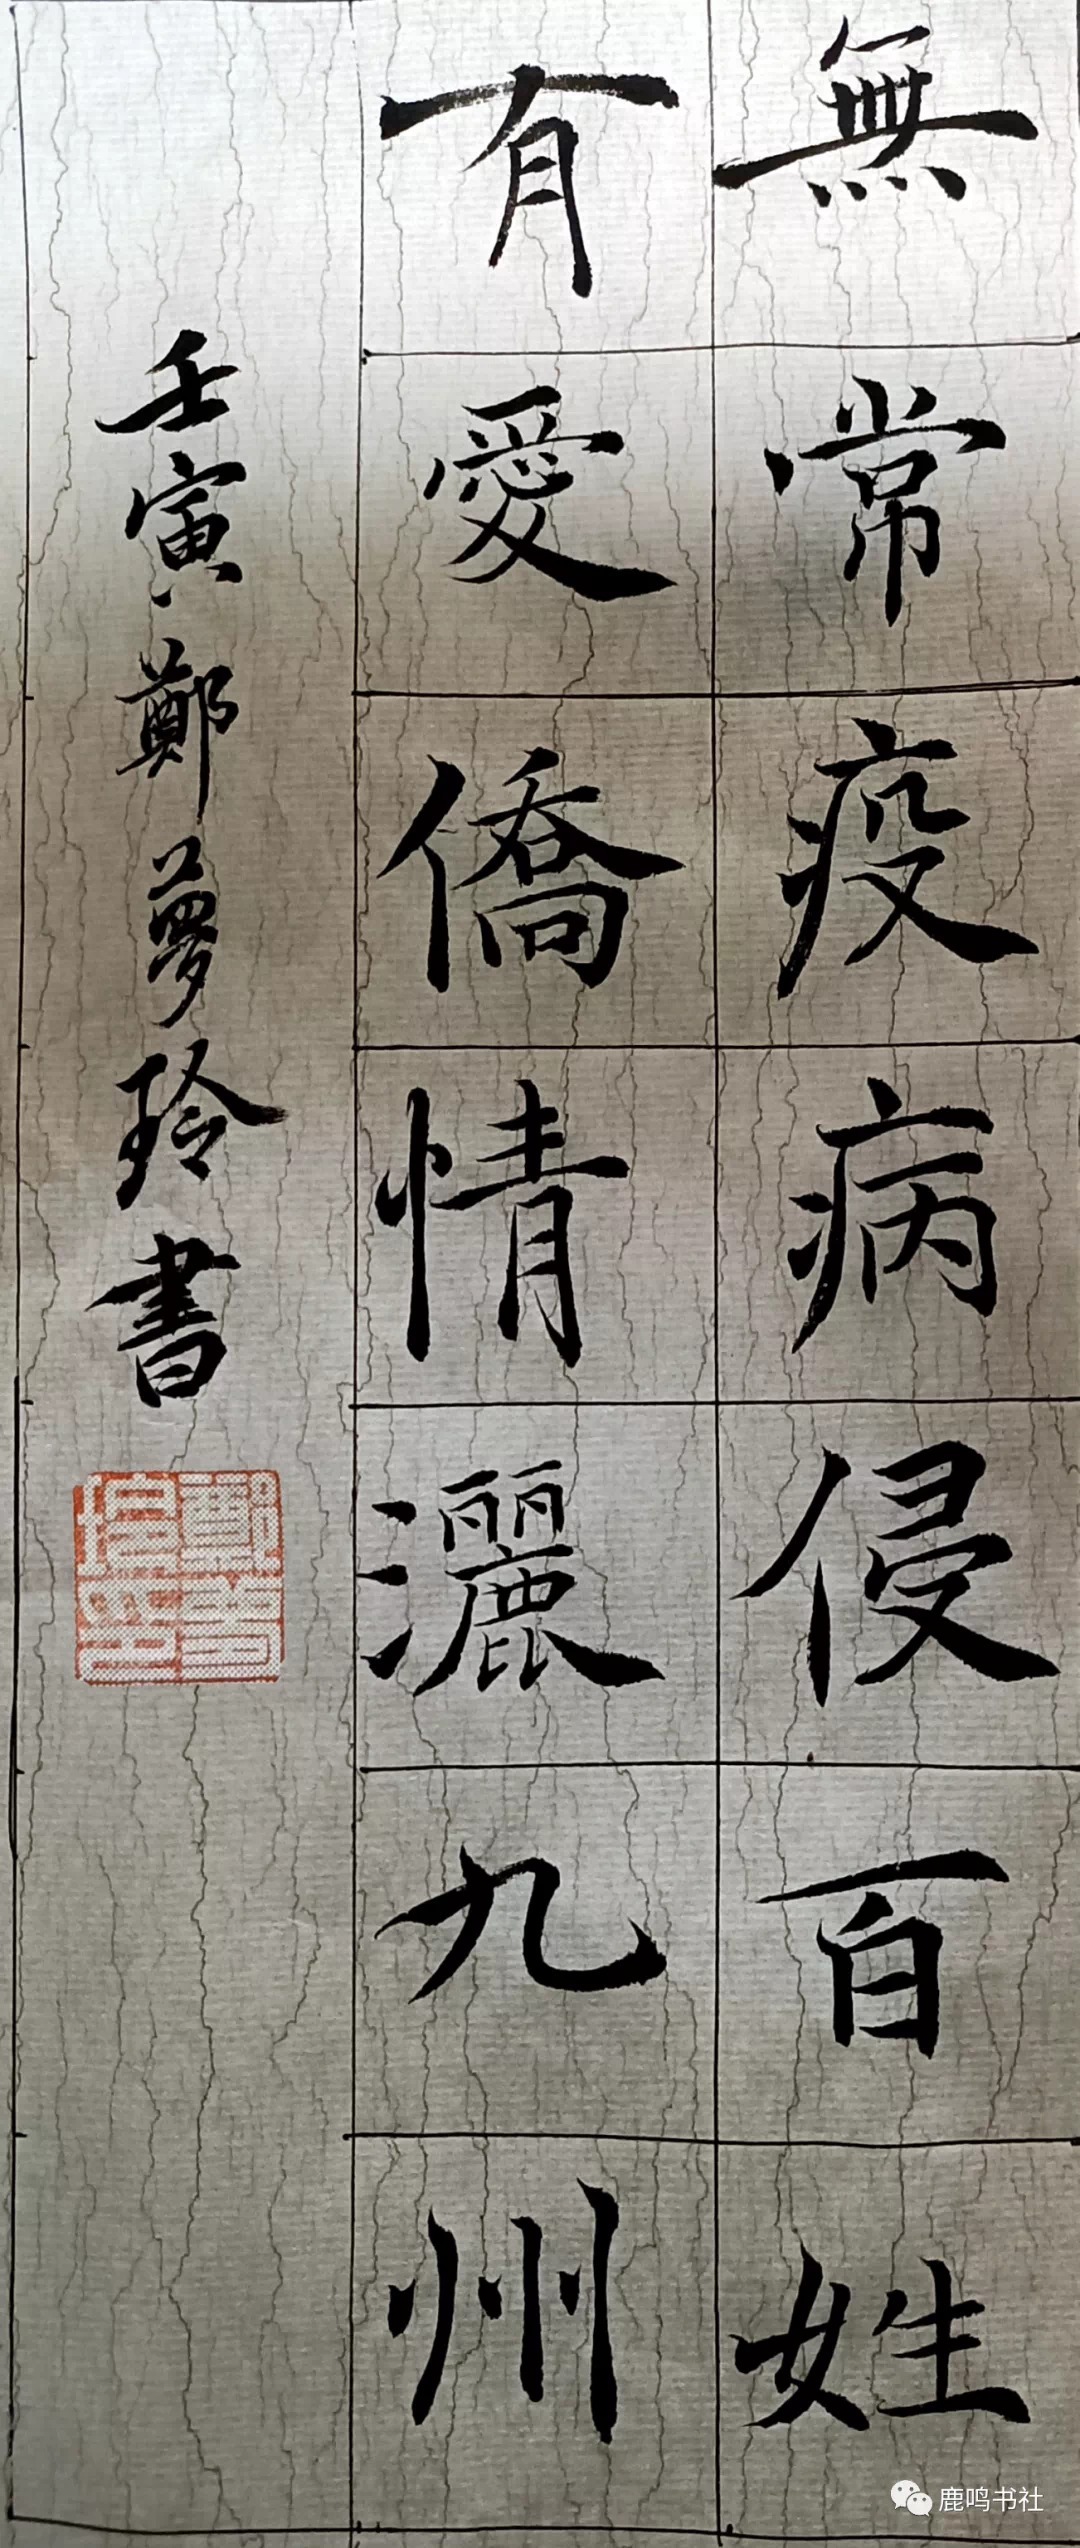 無常疫病侵百姓
有愛僑情灑九州
壬寅鄭夢玲書
鹿鸣书社